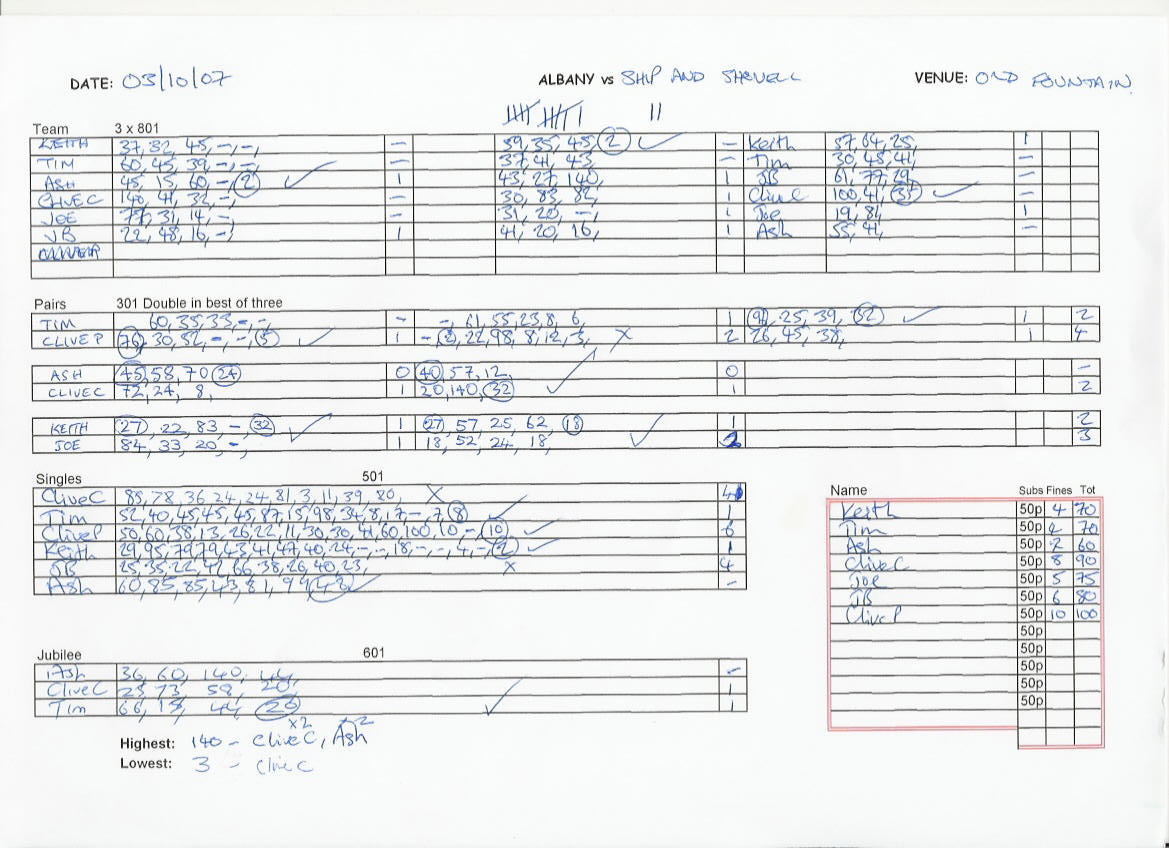 DATE: 03/10/07 ALBANY vs SHIP AND SHOVELL VENUE: OLD FOUNTAIN
Team 3 x 801
KEITH 37, 32, 45, -, -, — 39, 35, 45, 2 ✓ — Keith 57, 64, 25, 1
TIM 60, 45, 39, -, -, — 37, 41, 43, — Tim 30, 45, 41, —
ASH 45, 15, 60, -, 2 ✓ 1 43, 27, 140, 1 JB 61, 77, 29, —
CLIVE C 140, 41, 32, -, — 30, 83, 82, 1 Clive C 100, 41, 37 ✓ —
JOE 77, 31, 14, -, — 31, 20, -, 1 Joe 19, 81, 1
JB 22, 48, 16, -, 1 41, 20, 16, 1 Ash 55, 41, —
Pairs 301 Double in best of three
TIM 60, 35, 33, -, -, — -, 61, 55, 23, 8, 6, 1 25, 39, 32 ✓ 1 2
CLIVE P 76, 30, 52, -, -, 5 ✓ 1 22, 98, 8, 12, 3, X 2 26, 45, 38, 1 4
ASH 45, 58, 70, 24 0 40, 57, 12, 0 —
CLIVE C 72, 24, 8, 1 20, 140, 32 ✓ 1 2
KEITH 27, 22, 83, -, 32 ✓ 1 27, 57, 25, 62, 18 1 2
JOE 84, 33, 20, -, 1 18, 52, 24, 18, ✓ 2 3
Singles 501
Clive C 85, 78, 36, 24, 24, 81, 3, 11, 39, 80, X 4
Tim 52, 40, 45, 45, 45, 87, 15, 98, 34, 8, 17, -, 7, 8 ✓ 1
Clive P 50, 60, 38, 13, 26, 22, 11, 30, 30, 41, 60, 100, 10, -, 10 ✓ 6
Keith 29, 95, 79, 79, 43, 41, 47, 40, 24, -, -, 18, -, -, 4, -, 2 ✓ 1
JB 25, 35, 22, 41, 66, 38, 26, 40, 23, X 4
Ash 60, 85, 85, 43, 81, ✓ —
Name Subs Fines Tot
Keith 50p 4 70
Tim 50p 4 70
Ash 50p 2 60
Clive C 50p 8 90
Joe 50p 5 75
JB 50p 6 80
Clive P 50p 10 100
50p
50p
50p
50p
50p
Jubilee 601
Ash 36, 60, 140, 44, —
Clive C 23, 73, 58, 20, 1
Tim 66, 13, 44, ✓ 1
Highest: 140 - Clive C x2, Ash x2
Lowest: 3 - Clive C